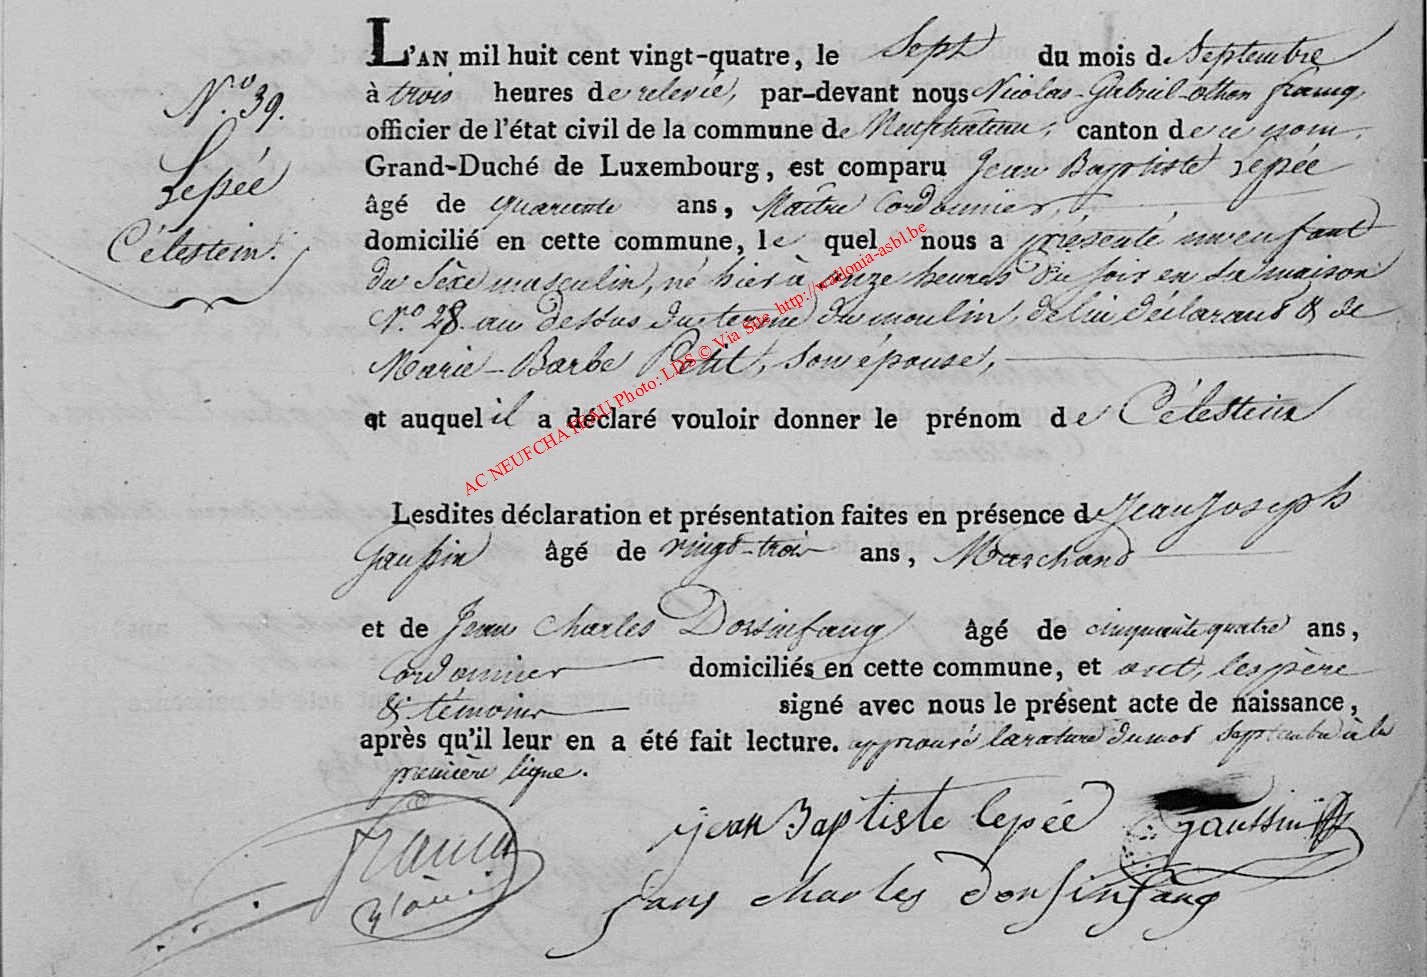 N.o 39.
Lepée
Célestein.
L'AN mil huit cent vingt-quatre, le Sept du mois de Septembre
à trois heures de relevée, par-devant nous Nicolas-Gabriel-Othon Francq,
officier de l'état civil de la commune de Neufchateau, canton de ce nom,
Grand-Duché de Luxembourg, est comparu Jean Baptiste Lepée
âgé de quarente ans, Maitre Cordonnier,
domicilié en cette commune, le quel nous a présenté un enfant
du Sexe masculin, né hier à onze heures du soir en sa maison
N.o 28. au dessus du terme du moulin, de lui déclarant & de
Marie-Barbe Petit, son épouse,
et auquel il a déclaré vouloir donner le prénom de Célestein
Lesdites déclaration et présentation faites en présence de Jean Joseph
Gaussin âgé de vingt-trois ans, Marchand
et de Jean Charles Dorsinfang âgé de cinquante quatre ans,
Cordonnier domiciliés en cette commune, et ont, les père
& témoins signé avec nous le présent acte de naissance,
après qu'il leur en a été fait lecture. approuvé la rature du mot septembre à la
première ligne.
jean Baptiste lepée gaussin
Francq
jans charles Dorsinfang
AC NEUFCHATEAU Photo: LDS © Via Site http://wallonia-asbl.be